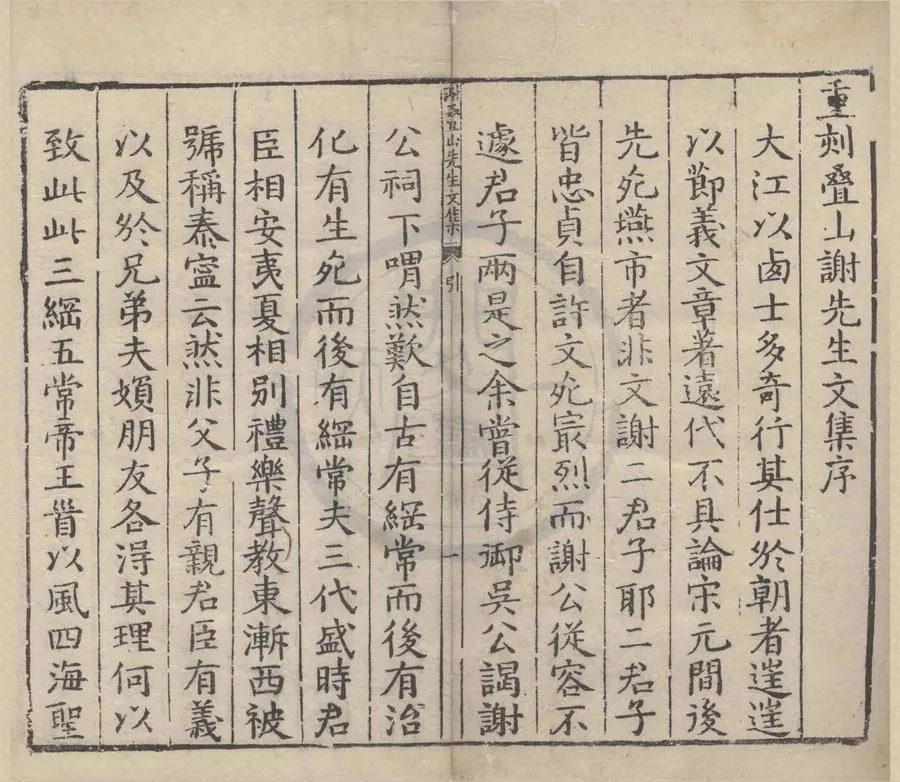 重刻疊山謝先生文集序
大江以鹵士多奇行其仕於朝者䢠䢠
以節義文章著遠代不具論宋元間後
先死燕市者非文謝二君子耶二君子
皆忠貞自許文死㝡烈而謝公從容不
遽君子兩是之余嘗從侍御吳公謁謝
謝疊山先生文集 引 一
公祠下喟然歎自古有綱常而後有治
化有生死而後有綱常夫三代盛時君
臣相安夷夏相別禮樂聲教東漸西被
號稱泰寧云然非父子有親君臣有義
以及於兄弟夫婦朋友各得其理何以
致此此三綱五常帝王眥以風四海聖